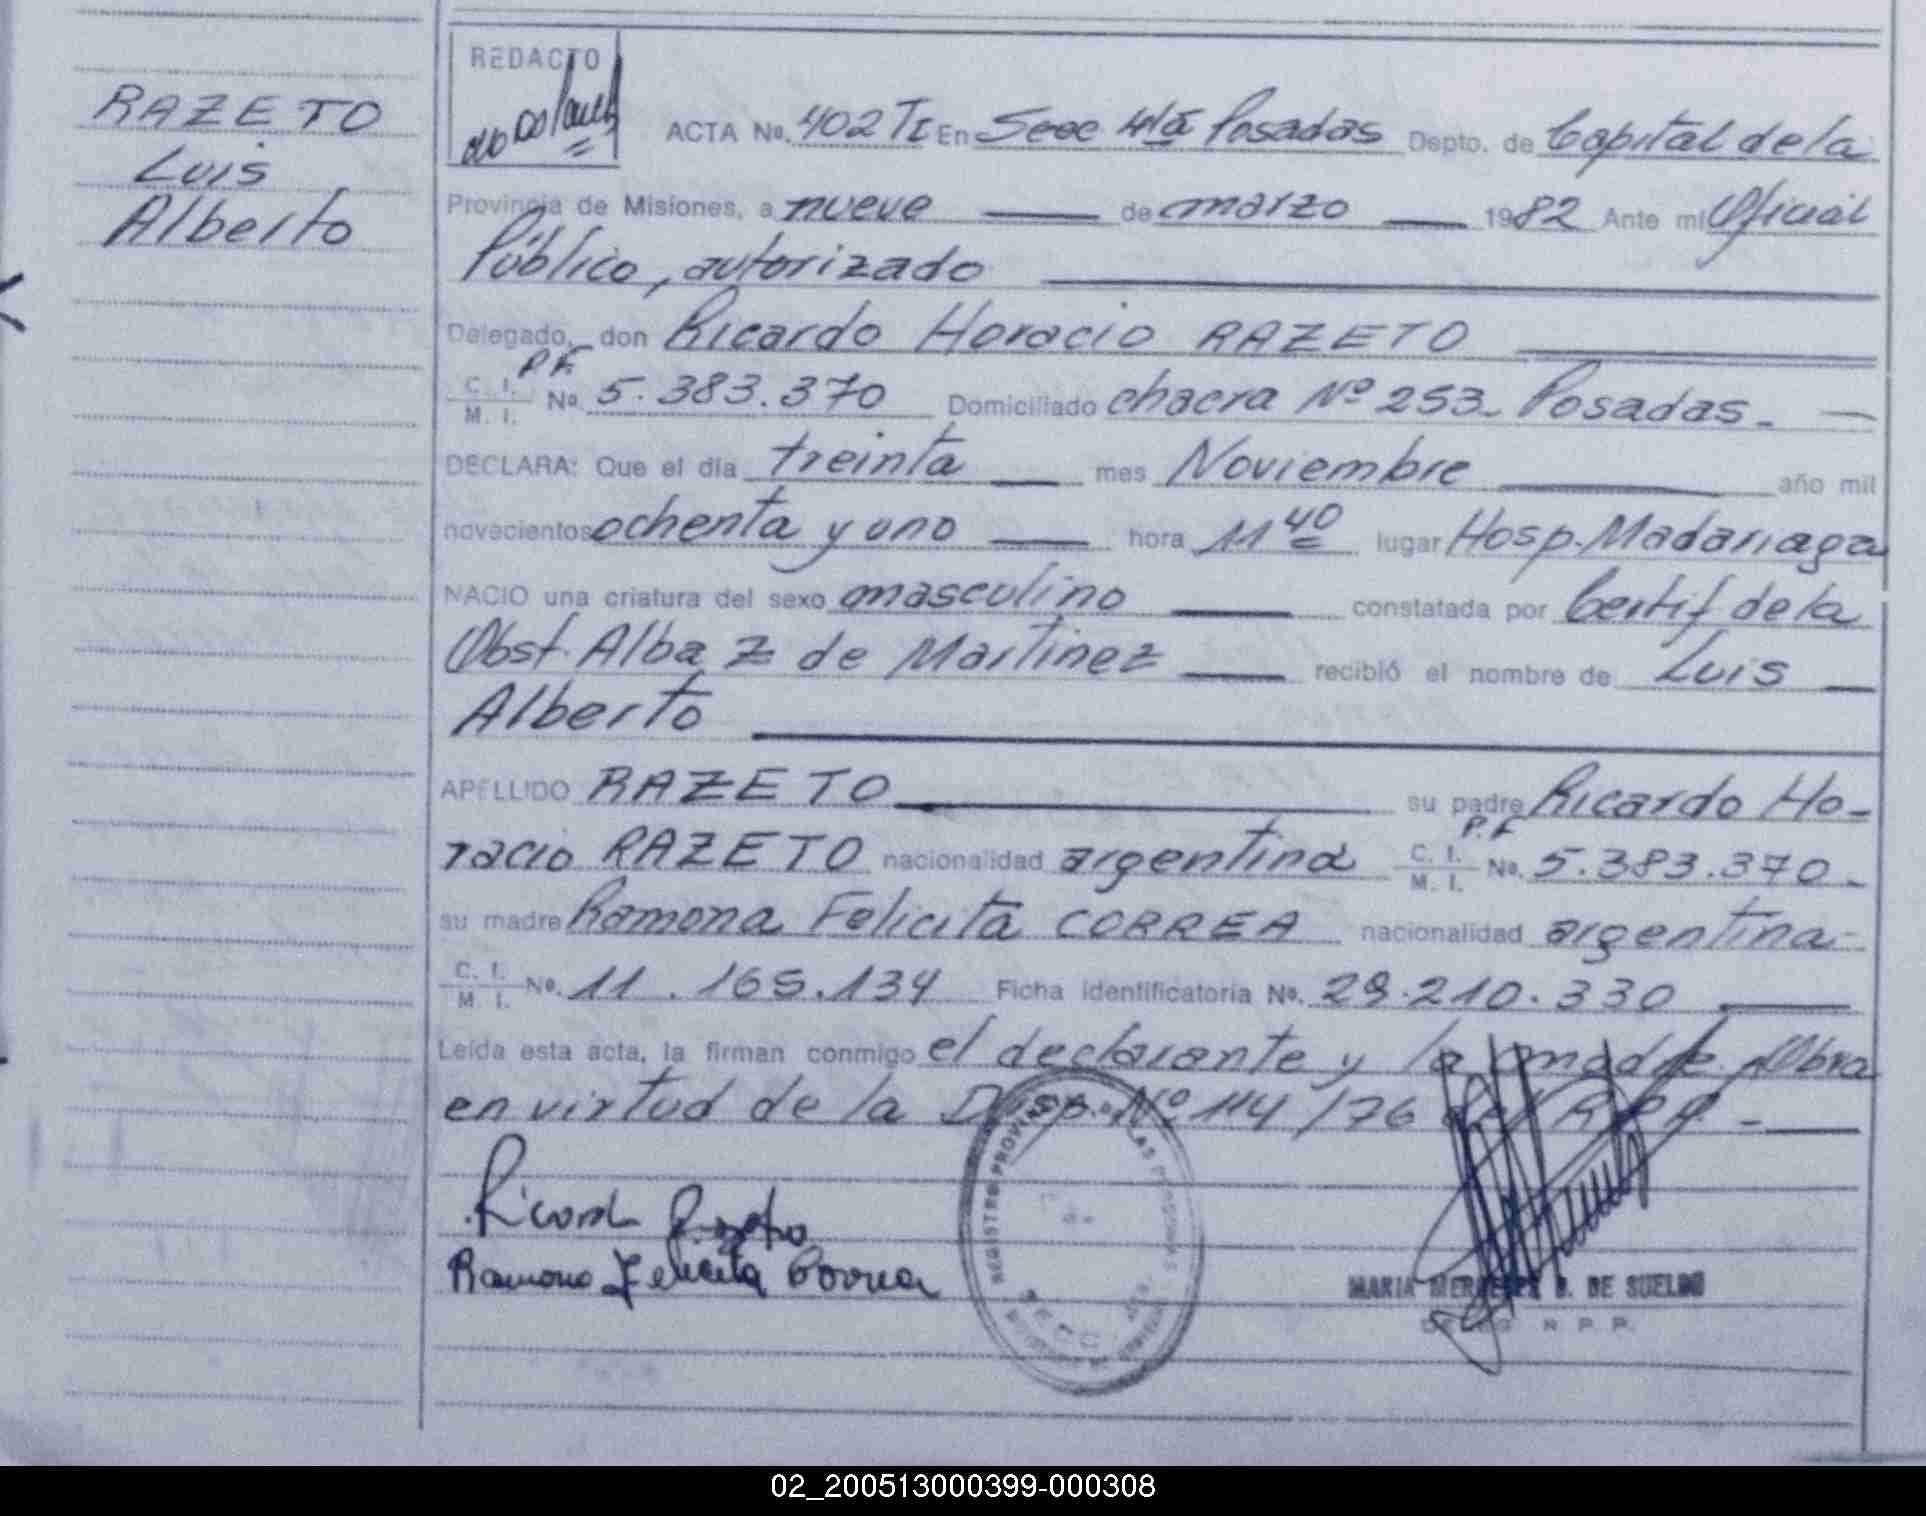 RAZETO
Luis
Alberto
REDACTO
ACTA No. 402 TI En Secc 4ta Posadas Depto. de Capital de la
Provincia de Misiones, a nueve de marzo 1982 Ante mi Oficial
Público, autorizado
Delegado, don Ricardo Horacio RAZETO
P.F.
C. I. M. I. No. 5.383.370 Domiciliado chacra Nº 253_ Posadas_
DECLARA: Que el día treinta mes Noviembre año mil
novecientos ochenta y uno hora 11 40 lugar Hosp. Madariaga
NACIO una criatura del sexo masculino constatada por Certif de la
Obst. Alba Z de Martinez recibió el nombre de Luis
Alberto
APELLIDO RAZETO su padre Ricardo Ho-
P.F
racio RAZETO nacionalidad argentina C. I. M. I. No. 5.383.370_
su madre Ramona Felicita CORREA nacionalidad argentina-
C. I. M. I. No. 11.165.134 Ficha identificatoria No. 29.210.330
Leída esta acta, la firman conmigo el declarante y la madre. Obra
en virtud de la Disp. Nº 114/76 del R.P.P. -
Ricardo Razeto
Ramona Felicita Correa
REGISTRO PROVINCIAL DE LAS PERSONAS
MARIA MERCEDES B. DE SUELDO
DELEG. R. P. P.
02_200513000399-000308